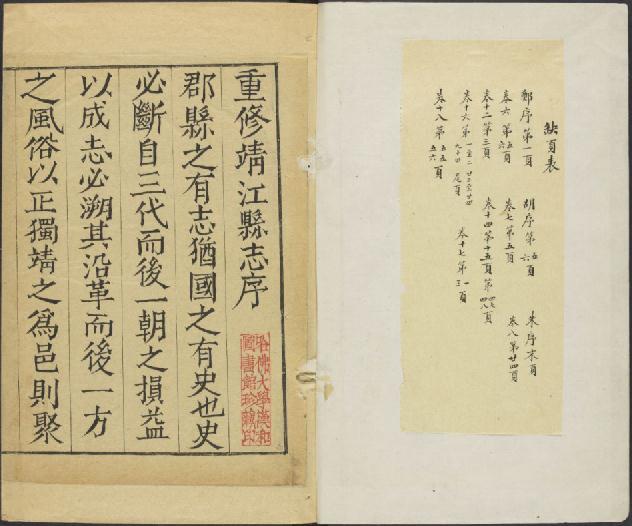 缺頁表
鄭序第一頁 胡序第五六頁 朱序末頁
卷六第五六頁 卷七第五頁 卷八第廿四頁
卷十二第三頁 卷十四第十五頁第
卷十六第一至二 尾頁 卷十七第
卷十八第 五六頁
重修靖江縣志序
哈佛大學漢和
圖書館珍藏印
郡縣之有志猶國之有史也史
必斷自三代而後一朝之損益
以成志必溯其沿革而後一方
之風俗以正獨靖之爲邑則聚